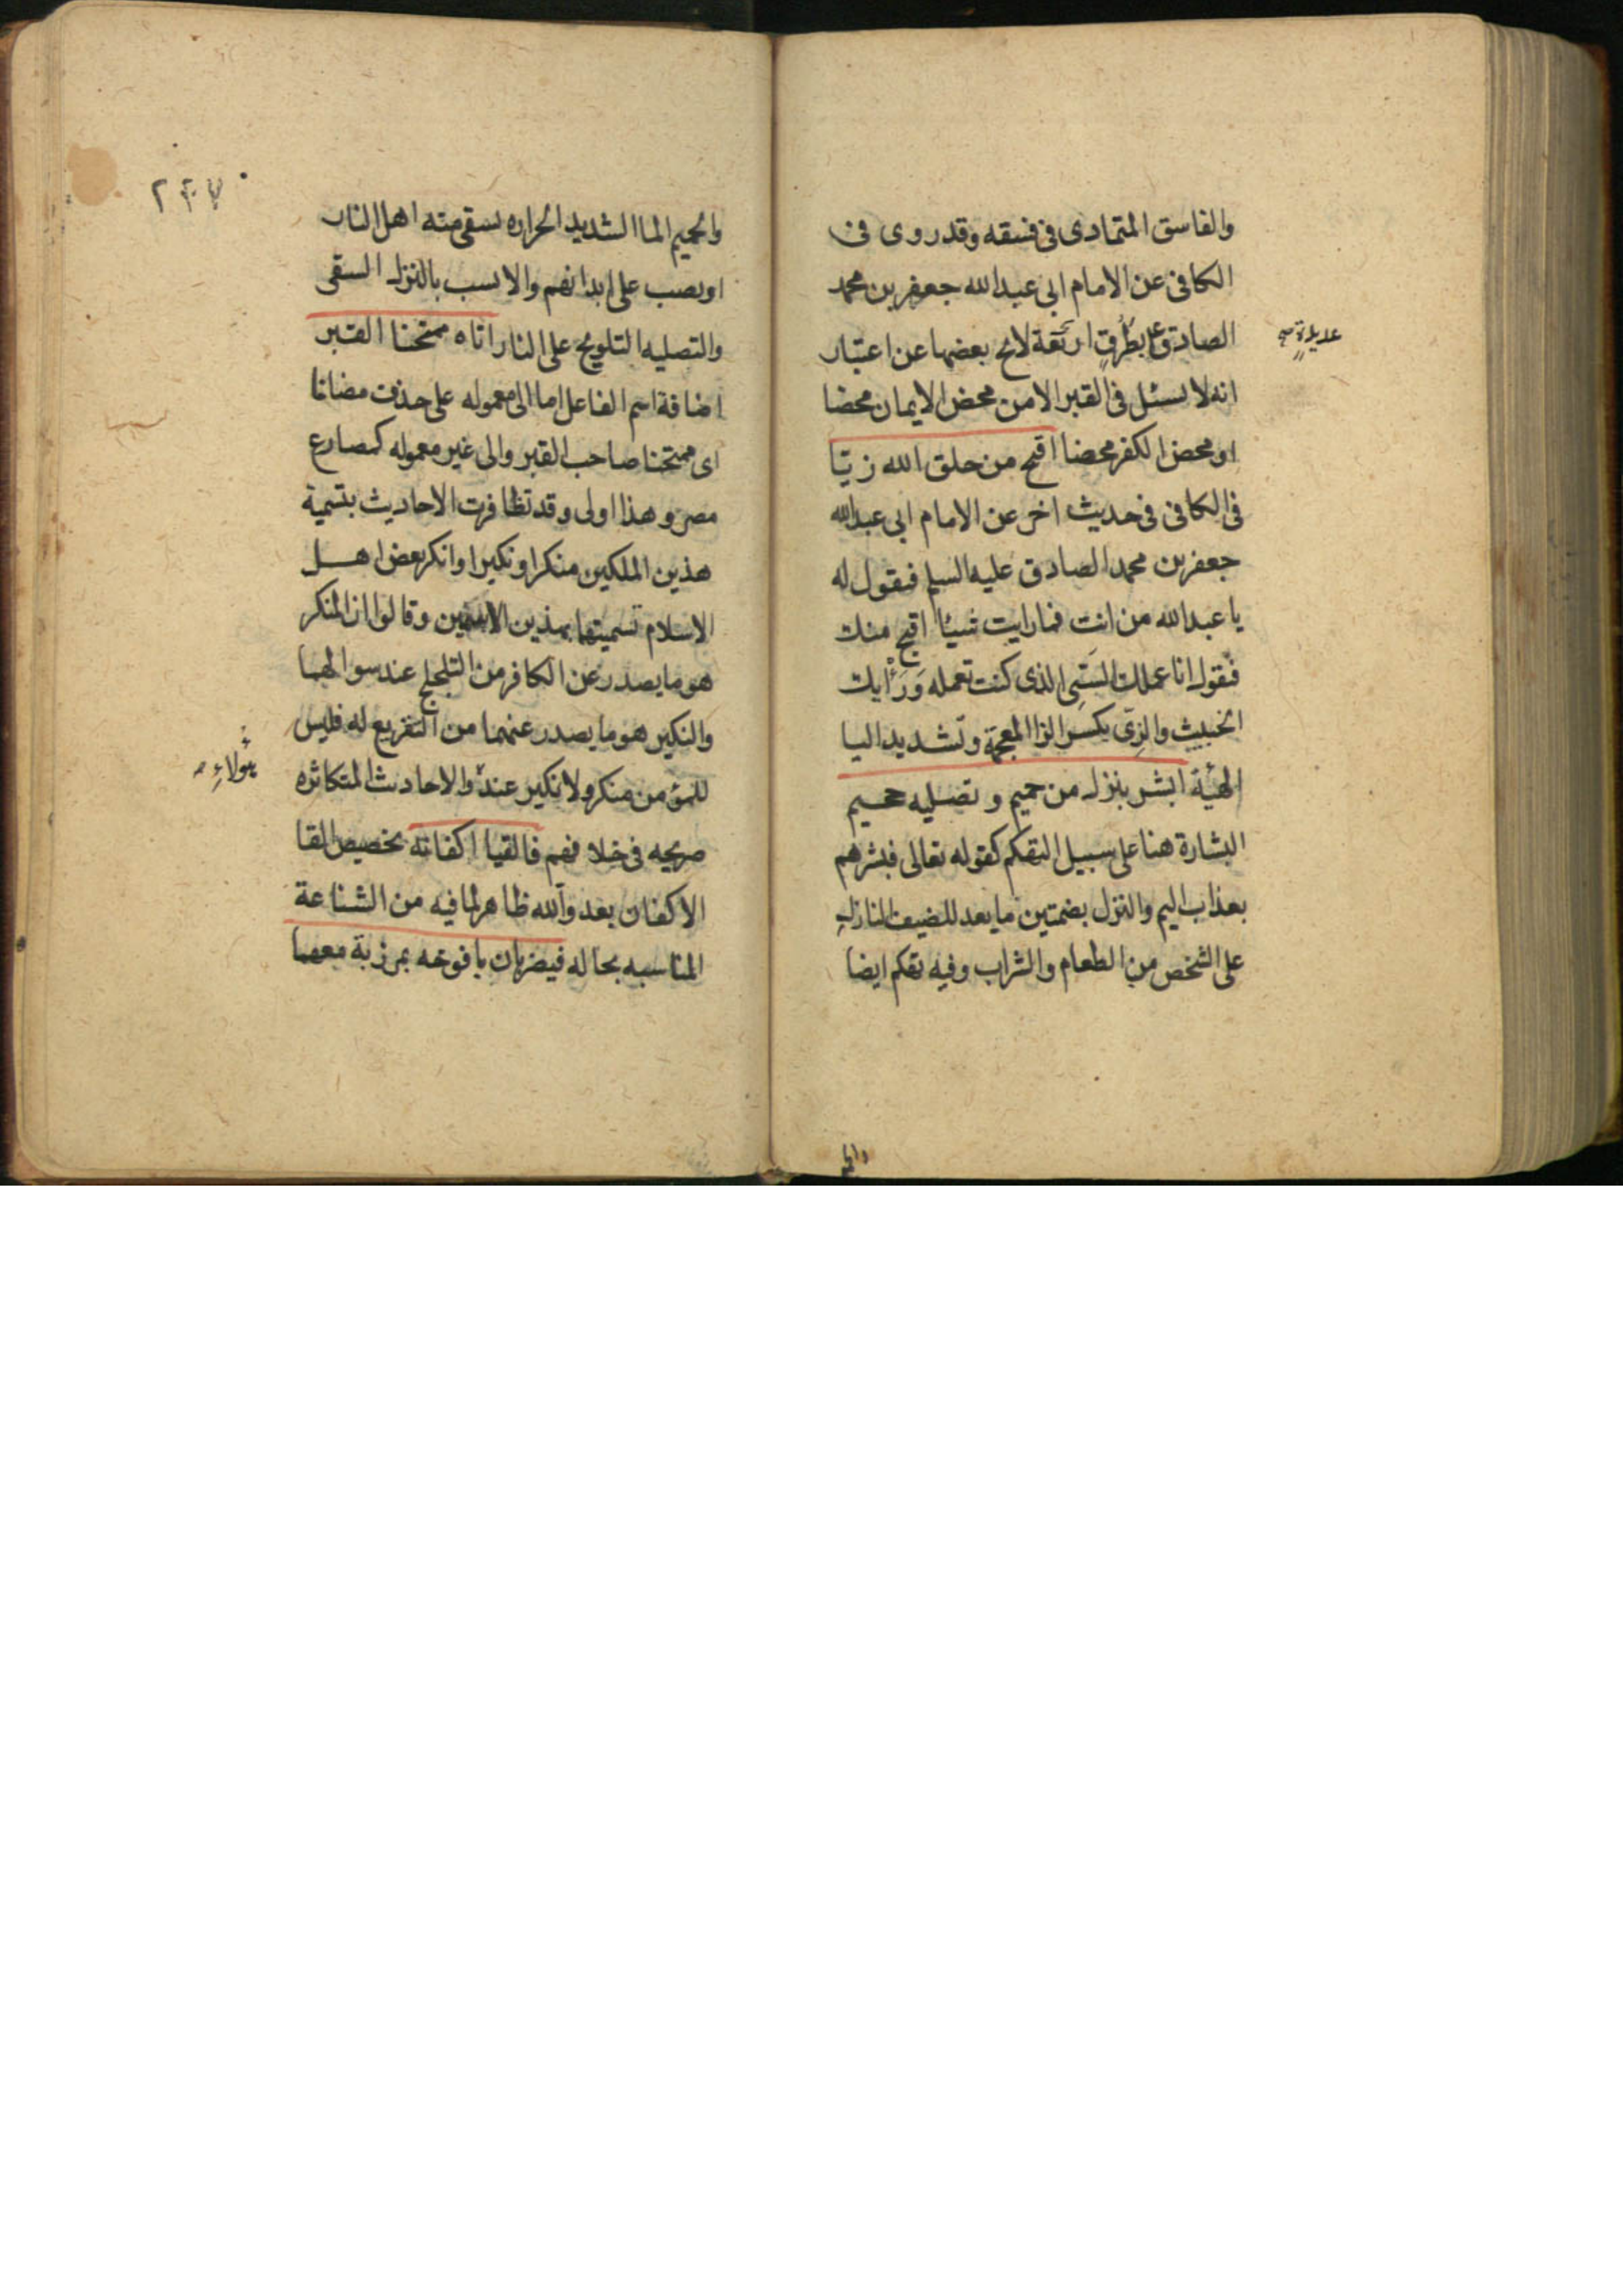 والفاسق المتمادى فى فسقه وقد روى فى
الكافى عن الامام ابى عبدالله جعفر بن محمد
الصادق ع بطرق لا بعضها عن اعتبار
انه لا يسئل فى القبر الا من محض الايمان محضا
او محض الكفر محضا اقبح من خلق الله زيّا
فى الكافى فى حديث اخر عن الامام ابى عبدالله
جعفر بن محمد الصادق عليه السلم فيقول له
يا عبدالله من انت فما رايت شيئا اقبح منك
فيقول انا عملك السّيى الذى كنت تعمله وَرَأْيك
الخبيث والزِىّ بكسر الزا المعجمة وتشديد اليا
الهئة ابشر بنزل من حميم وتصليه جحيم
البشارة هنا على سبيل التهكم كقوله تعالى فبشرهم
بعذاب اليم والنزل بضمتين ما يعد للضيف النازل
على الشخص من الطعام والشراب وفيه تهكم ايضا
عديدة صح
والح
٢٣٧
والحميم الما الشديد الحراره يسقى منه اهل النار
او يصب على ابدانهم والانسب بالنزل السقى
والتصليه التلويح على النار اتاه ممتحنا القبر
اضافة اسم الفاعل اما الى معموله على حذف مضاف
اى ممتحنا صاحب القبر والى غير معموله كمصارع
مصر وهذا اولى وقد تظافرت الاحاديث بتسمية
هذين الملكين منكرا ونكيرا وانكر بعض اهل
الاسلام تسميتهما بهذين الاسمين وقالوا ان المنكر
هو ما يصدر عن الكافر من التلجلج عند سوالهما
والنكير هو ما يصدر عنهما من التقريع له فليس
للمؤمن منكر ولا نكير عند والاحاديث المتكاثره
صريحه فى خلافهم فالقيا اكفانه تخصيص القا
الاكفان بعد والله ظاهر لما فيه من الشناعة
المناسبه بحاله فيضربان يافوخه بمرزبة معهما
هٰؤلاءِ